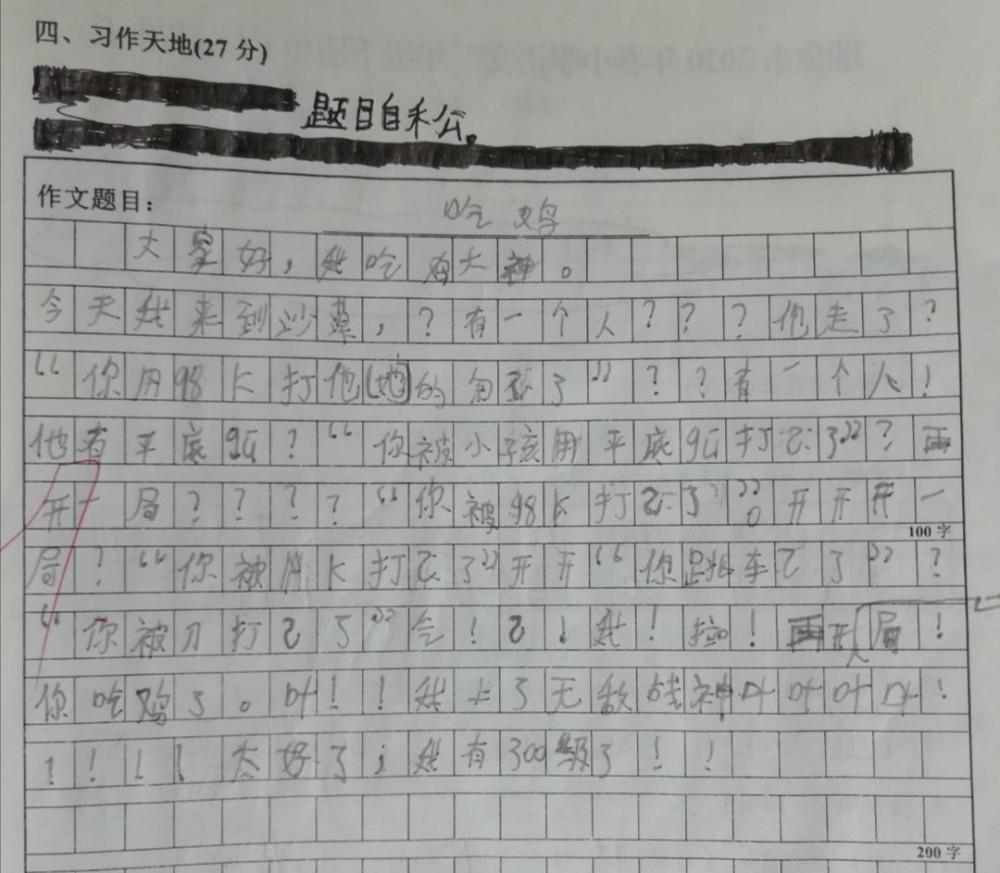 四、习作天地(27分)
题目自禾公。
作文题目：
吃鸡
大家好，我吃鸡大神。
今天我来到沙漠，？有一个人？？？他走了？
“你用98K打他(她)的了”？？有一个人！
他有平底9瓜？“你被小孩用平底9瓜打乙了”？再
开一局？？？？“你被98K打乙了”。开开开一
100字
局？“你被K打乙了”开开“你跳车乙了”？
“你被刀打乙了”会！乙！我！拉！再开局！
你吃鸡了。叶！！我上了无敌战神叶叶叶叶！
！！！！太好了；我有300级了！！
200字